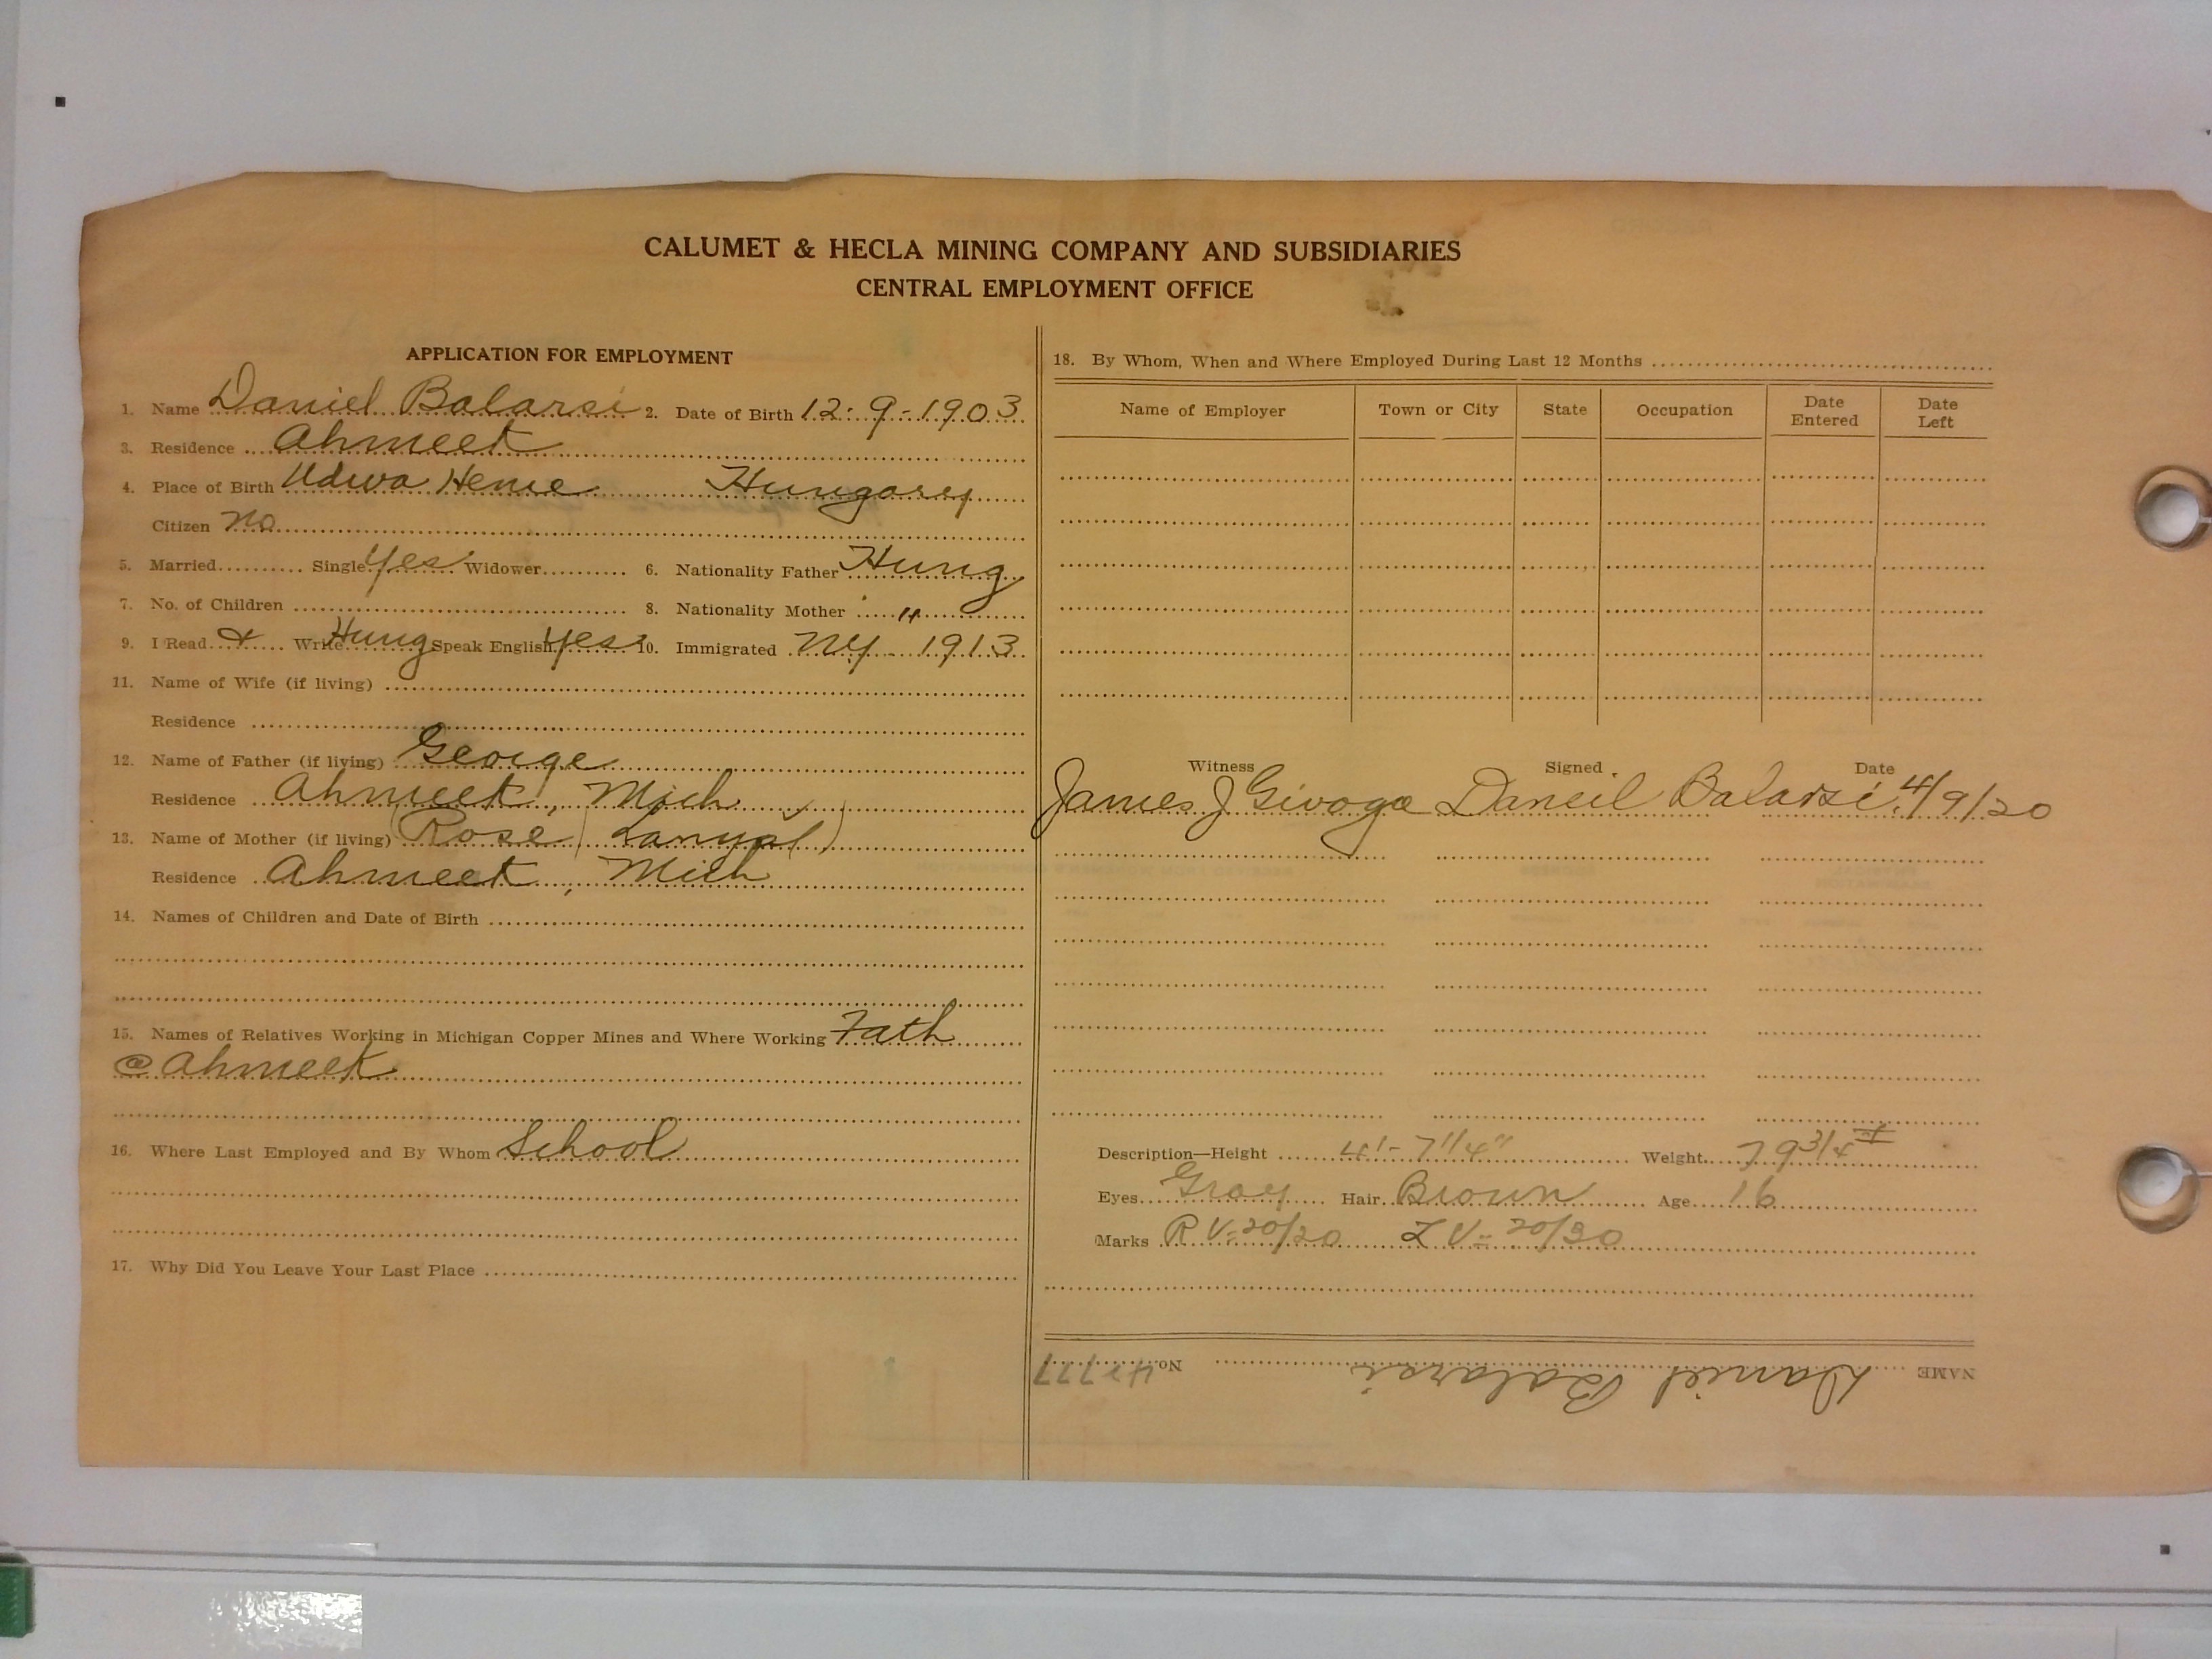 CALUMET & HECLA MINING COMPANY AND SUBSIDIARIES
CENTRAL EMPLOYMENT OFFICE
APPLICATION FOR EMPLOYMENT
1. Name Daniel Balarsi 2. Date of Birth 12-9-1903
3. Residence Ahmeek
4. Place of Birth Udwa Hungary
Citizen No
5. Married Single Yes Widower 6. Nationality Father Hung
7. No. of Children 8. Nationality Mother "
9. I Read & Write Hung Speak English Yes 10. Immigrated NY 1913
11. Name of Wife (if living)
Residence
12. Name of Father (if living) George
Residence Ahmeek, Mich
13. Name of Mother (if living) Rose
Residence Ahmeek, Mich
14. Names of Children and Date of Birth
15. Names of Relatives Working in Michigan Copper Mines and Where Working Fath
@ Ahmeek
16. Where Last Employed and By Whom School
17. Why Did You Leave Your Last Place
18. By Whom, When and Where Employed During Last 12 Months
Name of Employer Town or City State Occupation Date Entered Date Left
Witness Signed Date
James J Daneil Balarsi 4/9/20
Description—Height 4'-7 1/4" Weight 79 3/4 #
Eyes Gray Hair Brown Age 16
Marks R V= 20/20 L V= 20/30
NAME Daniel Balarsi No.